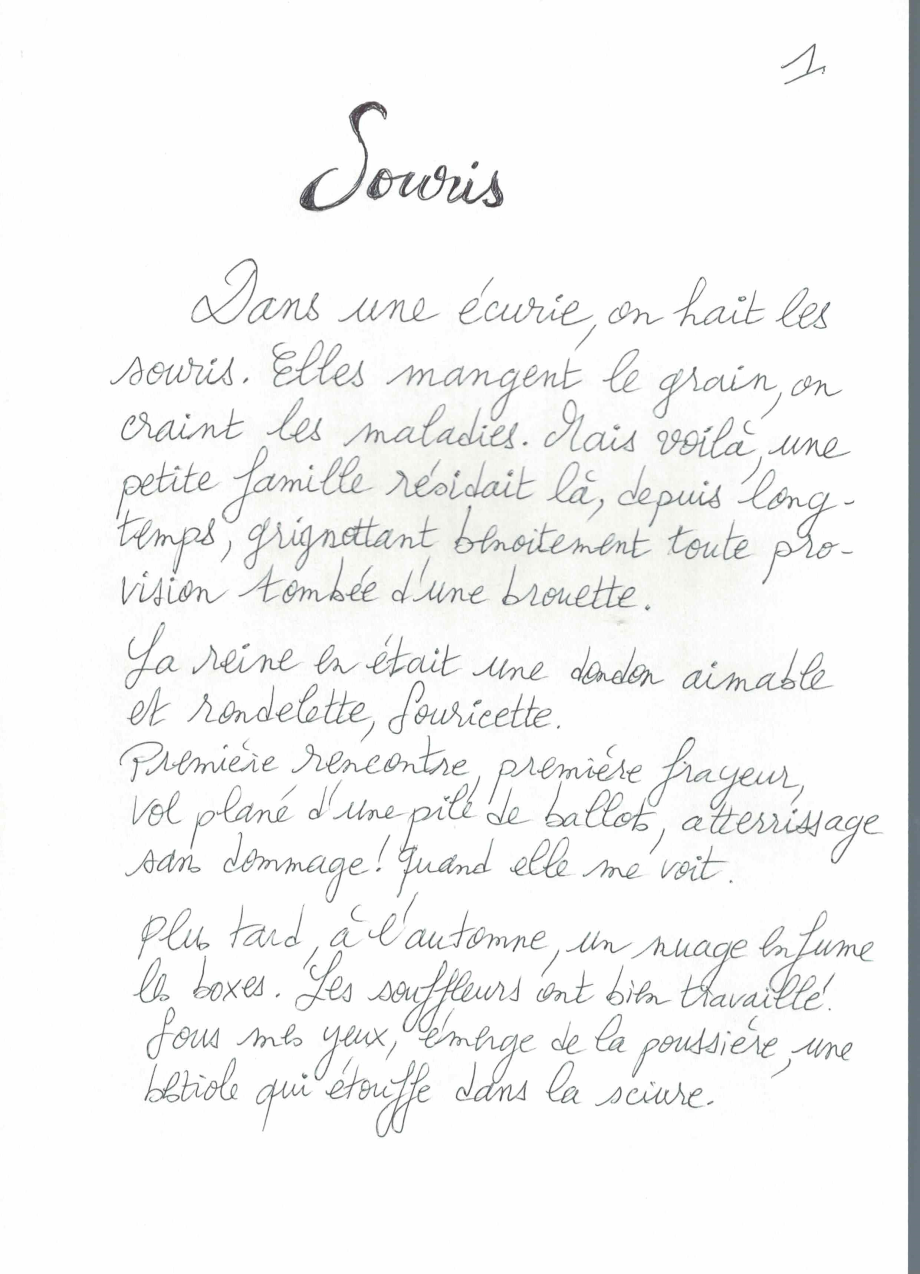 1.
Souris
Dans une écurie, on hait les
souris. Elles mangent le grain, on
craint les maladies. Mais voilà, une
petite famille résidait là, depuis long-
temps, grignottant benoitement toute pro-
vision tombée d'une brouette.
La reine en était une dondon aimable
et rondelette, Souricette.
Première rencontre, première frayeur,
vol plané d'une pile de ballots, atterrissage
sans dommage ! Quand elle me voit.
Plus tard, à l'automne, un nuage enfume
les boxes. Les souffleurs ont bien travaillé.
Sous mes yeux, émerge de la poussière, une
bestiole qui étouffe dans la sciure.